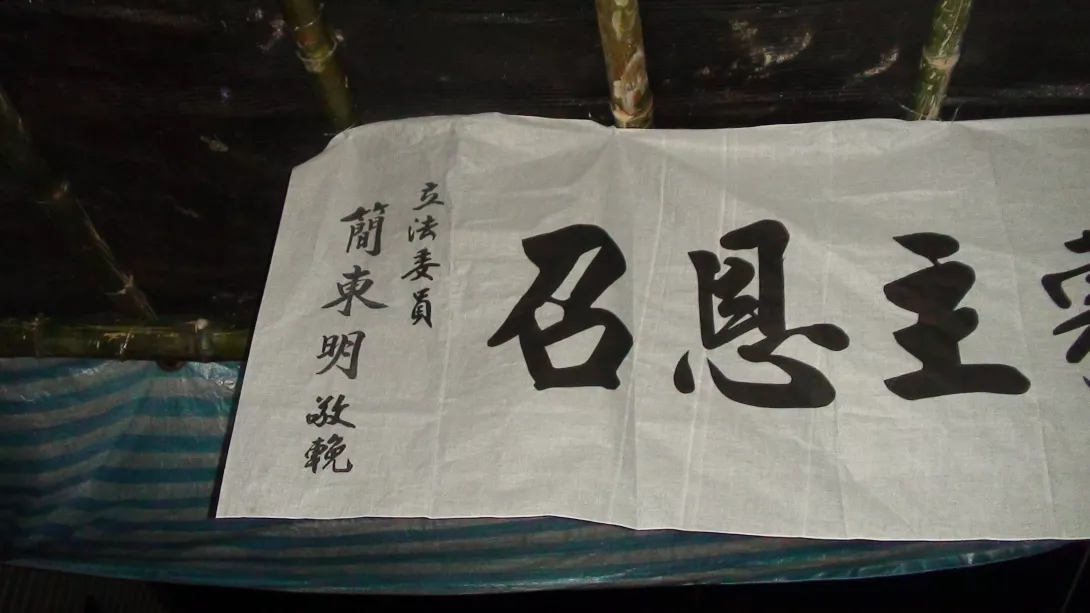 主恩召
立法委員
簡東明敬輓